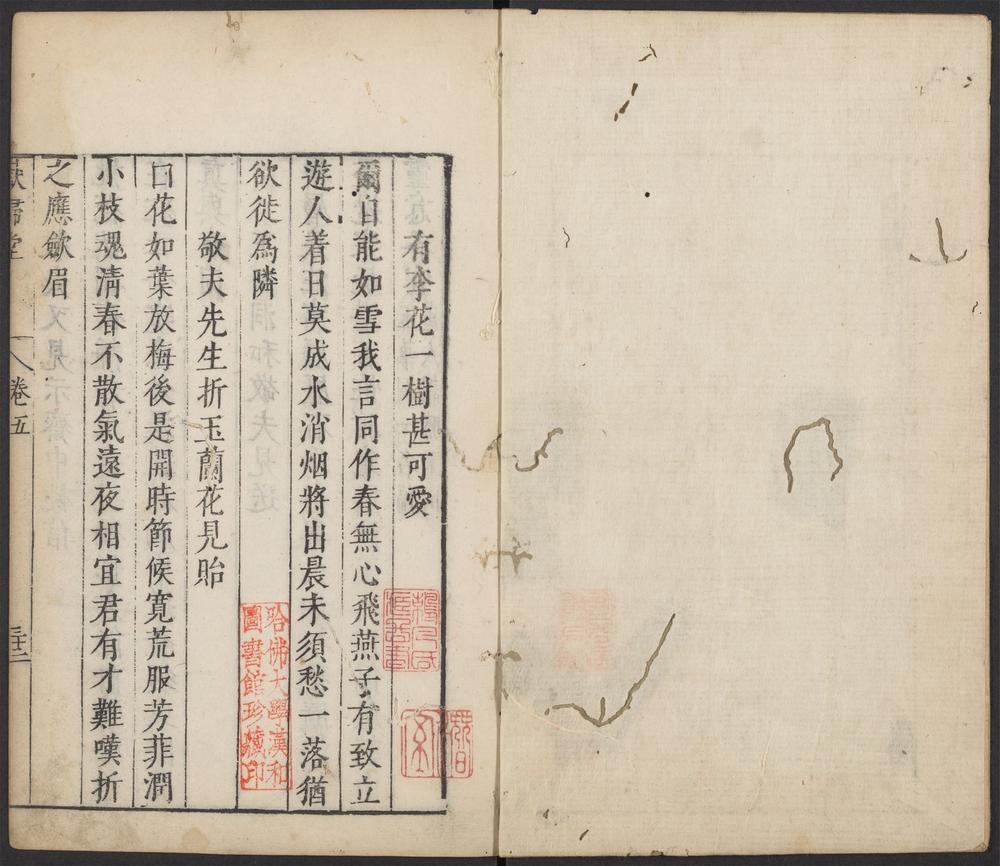 有李花一樹甚可愛
爾自能如雪我言同作春無心飛燕子有致立
遊人着日莫成水消烟將出晨未須愁一落猶
欲徙爲隣
敬夫先生折玉蘭花見貽
口花如葉放梅後是開時節候寬荒服芳菲澗
小枝魂清春不散氣遠夜相宜君有才難嘆折
之應斂眉
卷五
哈佛大學漢和
圖書館珍藏印